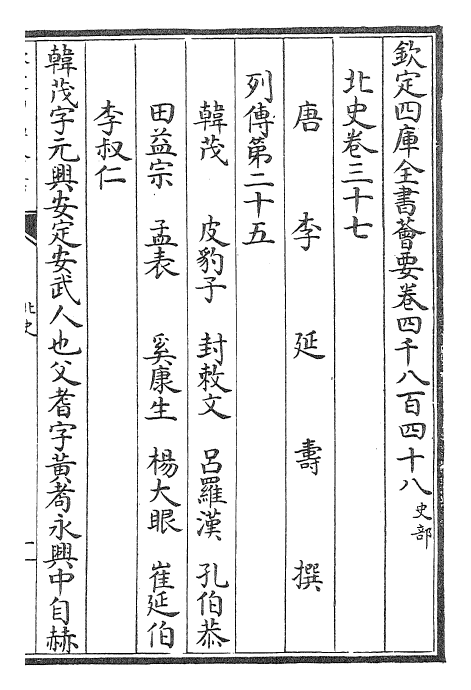 欽定四庫全書薈要卷四千八百四十八 史部
北史卷三十七
唐 李 延 壽 撰
列傳第二十五
韓茂 皮豹子 封敕文 呂羅漢 孔伯恭
田益宗 孟表 奚康生 楊大眼 崔延伯
李叔仁
韓茂字元興安定安武人也父耆字黃耇永興中自赫
北史